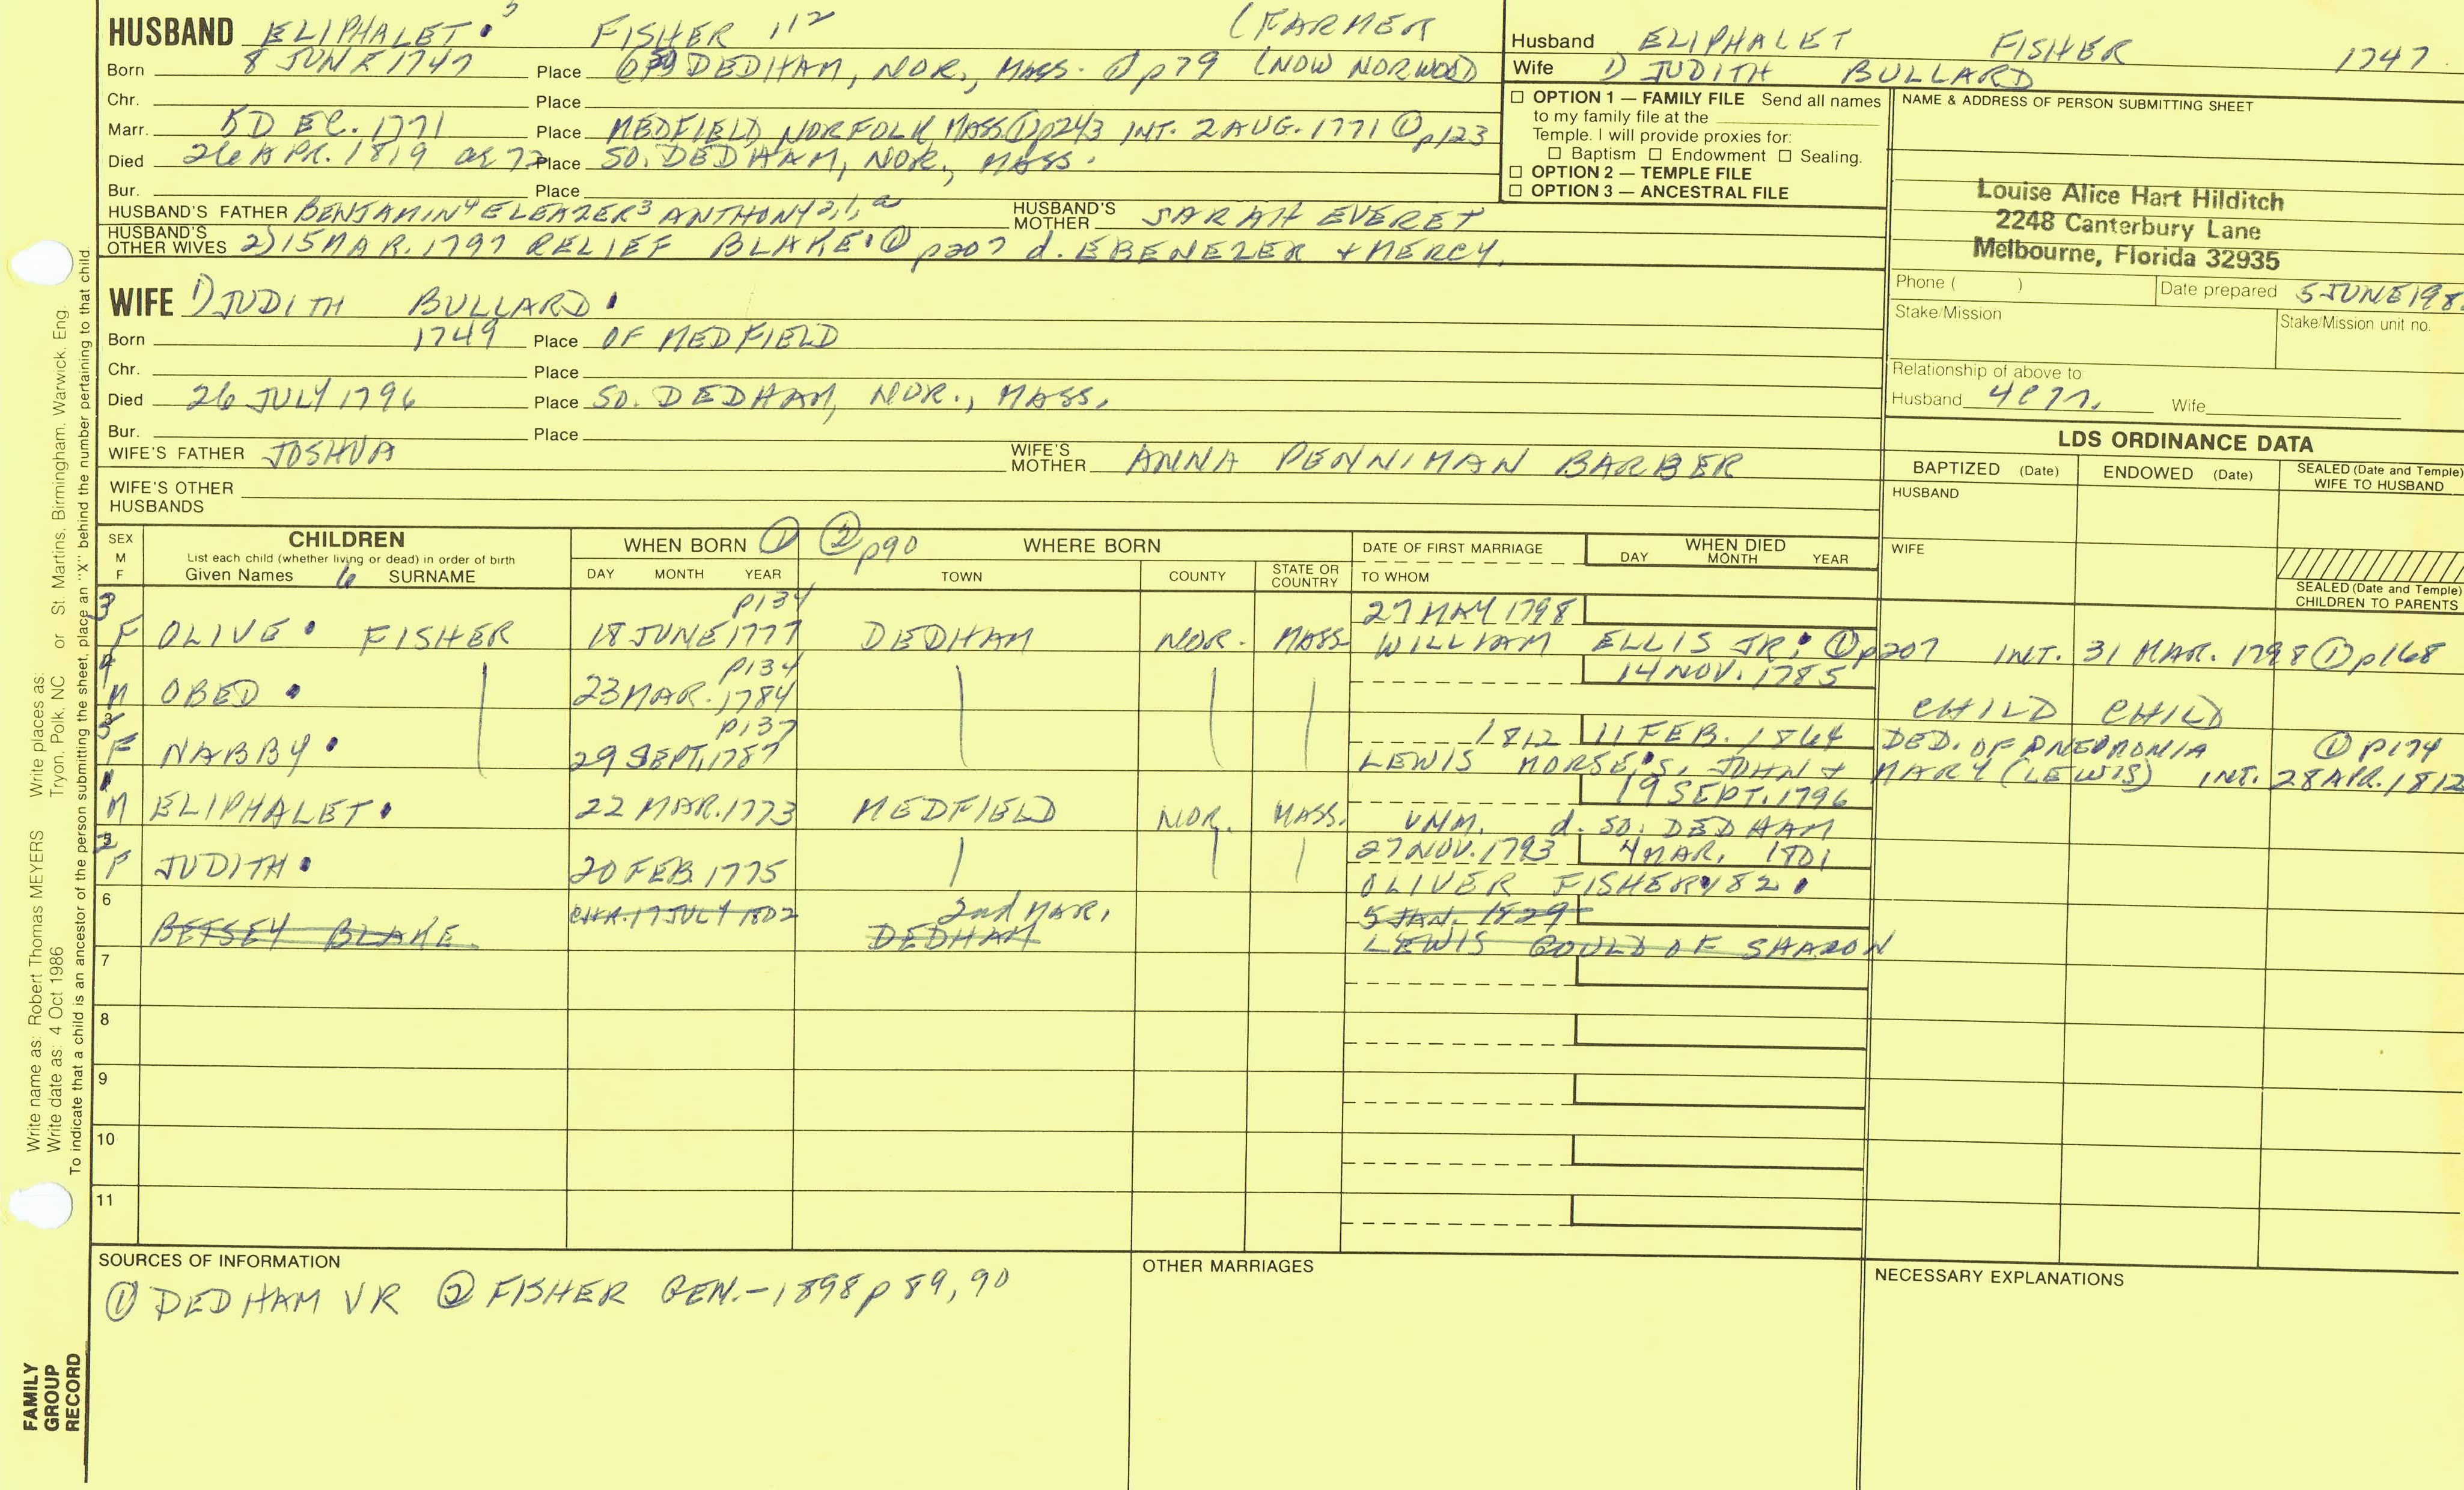 HUSBAND ELIPHALET 5 FISHER 112 (FARMER
Born 8 JUNE 1747 Place DEDHAM, NOR., MASS. ① p79 (NOW NORWOOD
Chr. Place
Marr. 5 DEC. 1771 Place MEDFIELD, NORFOLK MASS ① p243 INT. 2 AUG. 1771 ① p123
Died 26 APR. 1819 ae 72 Place SO. DEDHAM, NOR., MASS.
Bur. Place
HUSBAND'S FATHER BENJAMIN4 ELEAZER3 ANTHONY2,1,a HUSBAND'S MOTHER SARAH EVERET
HUSBAND'S OTHER WIVES 2) 15 MAR. 1797 RELIEF BLAKE ① p207 d. EBENEZER + MERCY.
WIFE 1) JUDITH BULLARD
Born 1749 Place OF MEDFIELD
Chr. Place
Died 26 JULY 1796 Place SO. DEDHAM, NOR., MASS.
Bur. Place
WIFE'S FATHER JOSHUA WIFE'S MOTHER ANNA PENNIMAN BARBER
WIFE'S OTHER HUSBANDS
Husband ELIPHALET FISHER 1747
Wife 1) JUDITH BULLARD
☐ OPTION 1 — FAMILY FILE Send all names
to my family file at the
Temple. I will provide proxies for:
☐ Baptism ☐ Endowment ☐ Sealing.
☐ OPTION 2 — TEMPLE FILE
☐ OPTION 3 — ANCESTRAL FILE
NAME & ADDRESS OF PERSON SUBMITTING SHEET
Louise Alice Hart Hilditch
2248 Canterbury Lane
Melbourne, Florida 32935
Phone ( ) Date prepared 5 JUNE 198
Stake/Mission Stake/Mission unit no.
Relationship of above to:
Husband Wife
LDS ORDINANCE DATA
BAPTIZED (Date) ENDOWED (Date) SEALED (Date and Temple) WIFE TO HUSBAND
HUSBAND
WIFE
SEALED (Date and Temple) CHILDREN TO PARENTS
SEX M F
CHILDREN
List each child (whether living or dead) in order of birth
Given Names 6 SURNAME
WHEN BORN ① ② p90 WHERE BORN
DAY MONTH YEAR TOWN COUNTY STATE OR COUNTRY
DATE OF FIRST MARRIAGE
TO WHOM
WHEN DIED
DAY MONTH YEAR
3 p134 27 MAY 1798
F OLIVE FISHER 18 JUNE 1777 DEDHAM NOR. MASS WILLIAM ELLIS JR. ① p207 INT. 31 MAR. 1798 ① p168
4 p134 14 NOV. 1785
M OBED 23 MAR. 1784 CHILD CHILD
5 p137 1812 11 FEB. 1864 DED. OF PNEUMONIA ① p174
F NABBY 29 SEPT. 1787 LEWIS MORSE, S. JOHN + MARY (LEWIS) INT. 28 APR. 1812
1 19 SEPT. 1796
M ELIPHALET 22 MAR. 1773 MEDFIELD NOR. MASS. UNM. d. SO. DEDHAM
2 27 NOV. 1793 4 MAR. 1801
F JUDITH 20 FEB. 1775 OLIVER FISHER 182
6 CHR. 17 JULY 1802 2nd MAR. 5 JAN. 1829
BETSEY BLAKE DEDHAM LEWIS GOULD OF SHARON
7
8
9
10
11
SOURCES OF INFORMATION
① DEDHAM VR ② FISHER GEN.-1898 p 89, 90
OTHER MARRIAGES
NECESSARY EXPLANATIONS
Write name as: Robert Thomas MEYERS Write places as: St. Martins, Birmingham, Warwick, Eng.
Write date as: 4 Oct 1986 Tryon, Polk, NC or
To indicate that a child is an ancestor of the person submitting the sheet, place an "X" behind the number pertaining to that child.
FAMILY GROUP RECORD